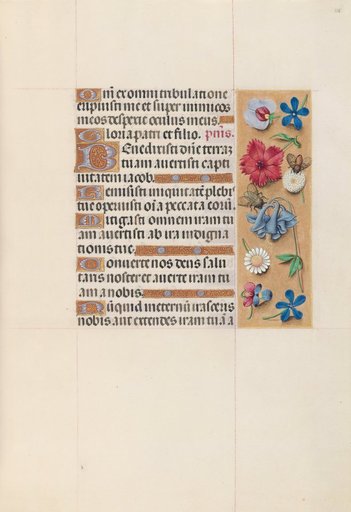 Qm̄ ex omni tribulatione
eripuisti me et super inimicos
meos respexit oculus meus.
Gloria patri et filio. p̄mꝰ.
Benedixisti dn̄e terrā
tuam avertisti capti
uitatem iacob.
Remisisti iniquitatē plebi
tue operuisti oīa peccata eorū.
Mitigasti omnem iram tu
am avertisti ab ira indigna
tionis tue.
Conuerte nos deus salu
taris noster et auerte iram tu
am a nobis.
Nūquid in eternū irasceris
nobis aut extendes iram tuā a